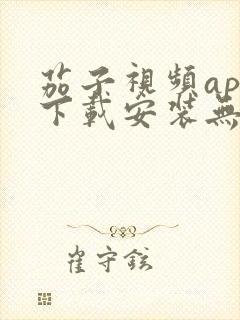 茄子視頻ap
下載安装無
崔守鉉